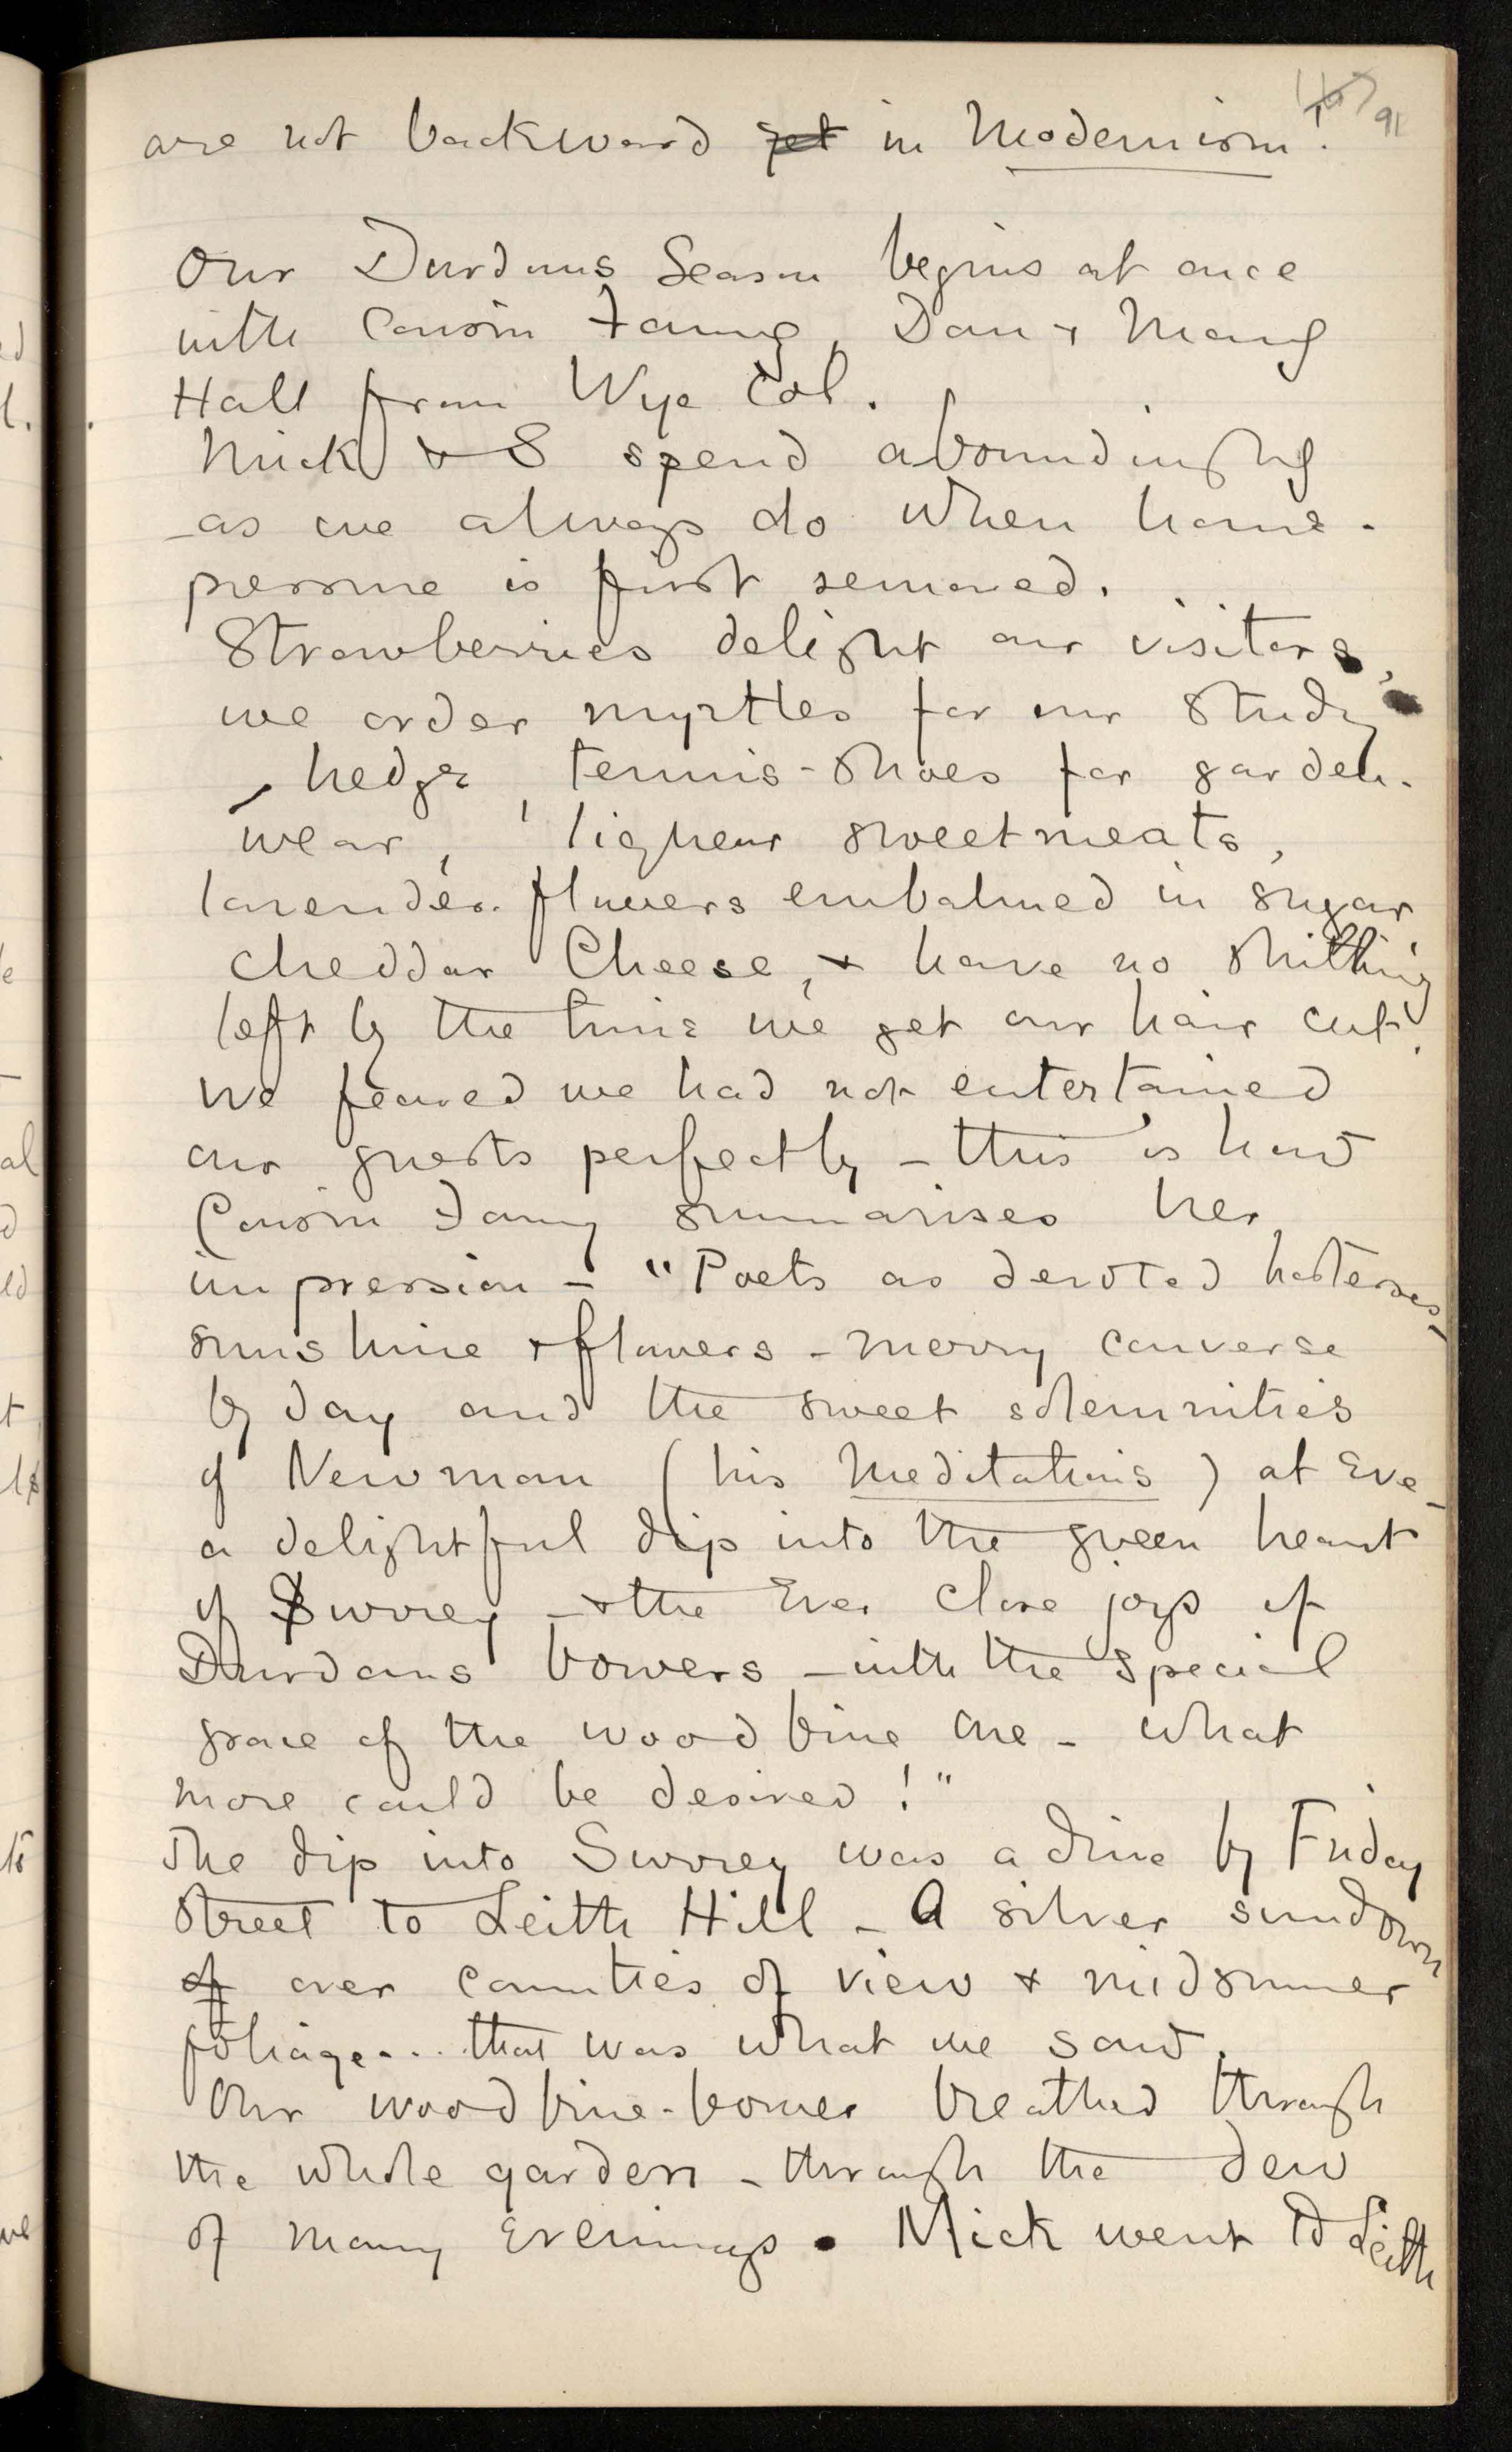 91
are not backward yet in Modernism!
Our Durdans Season begins at once
with Cousin Fanny, Dan & Mary
Hall from Wye Col.
Mick & S spend aboundingly
– as we always do when home-
pressure is first removed.
Strawberries delight our visitors,
we order myrtles for our Study
hedge, tennis-shoes for garden-
wear, liqueur sweetmeats,
lavender-flowers embalmed in sugar
cheddar Cheese, & have no shilling
left by the time we get our hair cut.
We feared we had not entertained
our guests perfectly – this is how
Cousin Fanny summarises her
impression – "Poets as devoted hostesses,
sunshine & flowers – merry converse
by day and the sweet solemnities
of Newman (his Meditations) at Eve –
a delightful dip into the green heart
of Surrey – & the Ever close joys of
Durdans bowers – with the special
grace of the woodbine one – what
more could be desired!"
The dip into Surrey was a drive by Friday
Street to Leith Hill – A silver sundown
of over counties of view & midsummer
foliage... that was what we saw.
Our woodbine-bower breathed through
the whole garden – through the dew
of many Evenings. Mick went to Leith